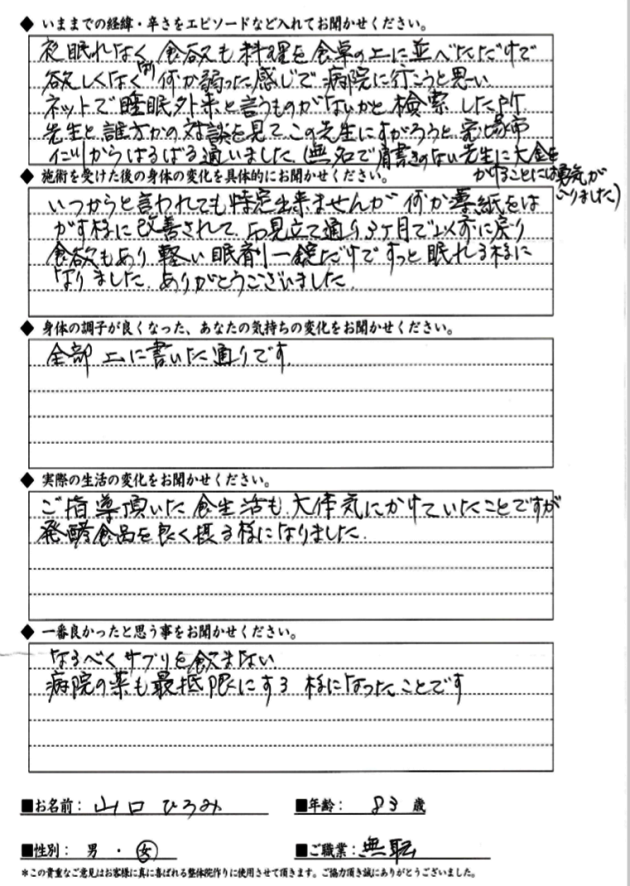 ◆ いままでの経緯・辛さをエピソードなど入れてお聞かせください。
夜眠れなく 食欲も料理を食卓の上に並べただけで
欲しくなく 何か弱った感じで病院に行こうと思い
ネットで睡眠外来と言うものがないかと検索した所
先生と誰方かの対談を見て この先生にすがろうと 宮城県
仙台からはるばる通いました (無名で肩書きのない先生に大金を
かけることには勇気が
いりました)
◆ 施術を受けた後の身体の変化を具体的にお聞かせください。
いつからと言われても特定出来ませんが 何か薄紙をは
がす様に改善されて お見立て通り3ヶ月で以前に戻り
食欲もあり 軽い眠剤一錠だけでずっと眠れる様に
なりました ありがとうございました
◆ 身体の調子が良くなった、あなたの気持ちの変化をお聞かせください。
全部 上に書いた通りです
◆ 実際の生活の変化をお聞かせください。
ご指導頂いた食生活も 大体気にかけていたことですが
発酵食品を良く摂る様になりました
◆ 一番良かったと思う事をお聞かせください。
なるべくサプリを飲まない
病院の薬も最低限にする 様になったことです
■お名前: 山口 ひろみ ■年齢: 83 歳
■性別: 男 ・ 女 ■ご職業: 無職
*この貴重なご意見はお客様に真に喜ばれる整体院作りに使用させて頂きます。ご協力頂き誠にありがとうございました。